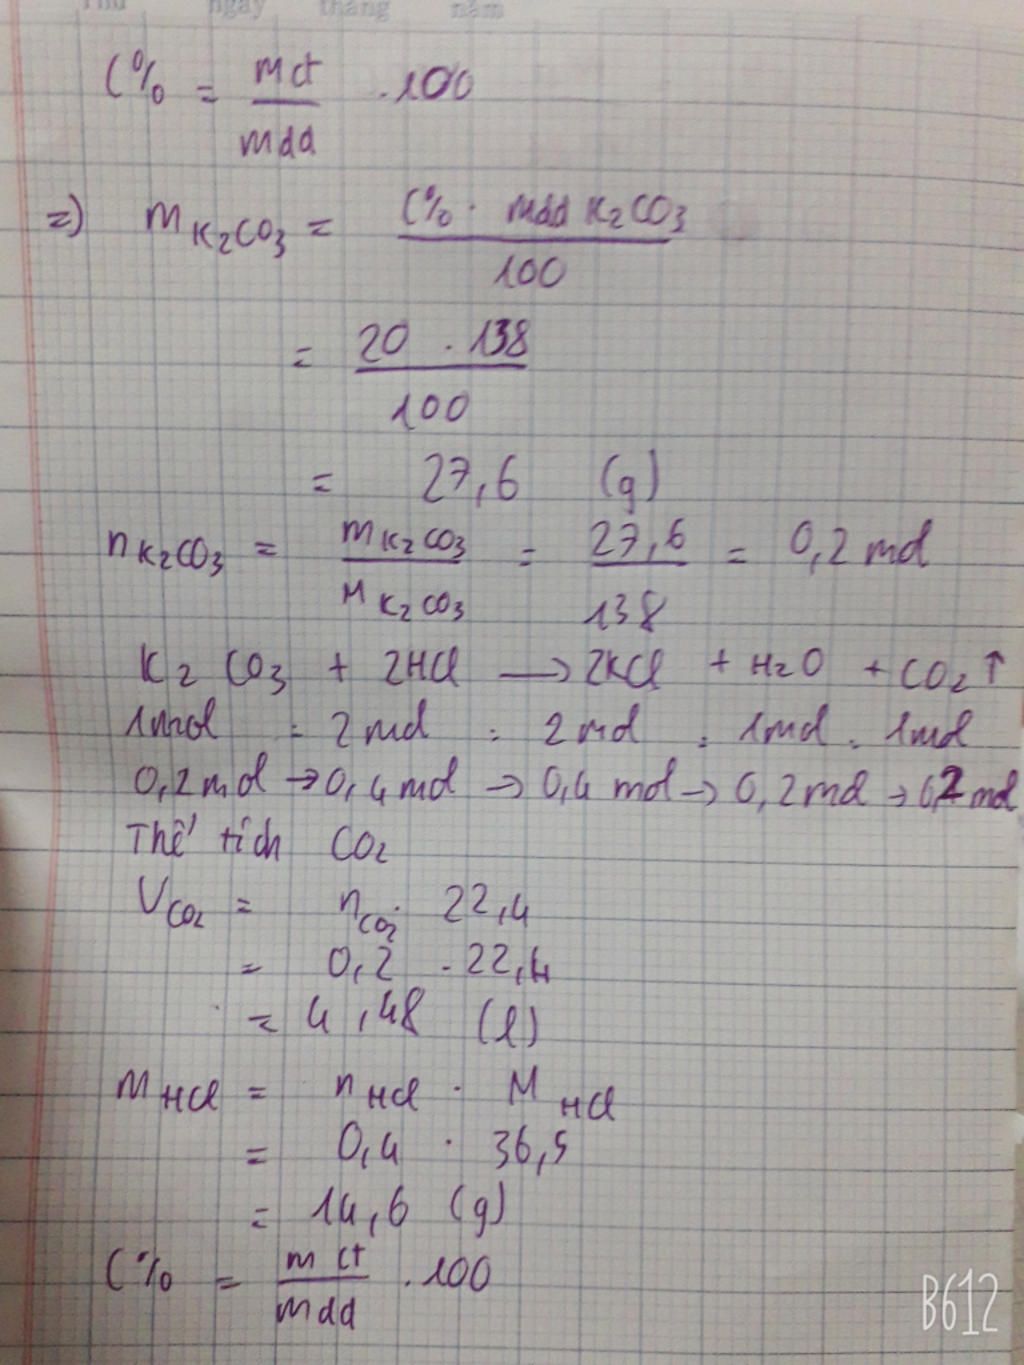 Thứ ngày tháng năm
C% = mct / mdd . 100
=) mK2CO3 = C% . mdd K2CO3 / 100
= 20 . 138 / 100
= 27,6 (g)
nK2CO3 = mK2CO3 / MK2CO3 = 27,6 / 138 = 0,2 mol
K2CO3 + 2HCl → 2KCl + H2O + CO2↑
1mol : 2mol : 2mol : 1mol : 1mol
0,2mol → 0,4mol → 0,4mol → 0,2mol → 0,2mol
Thể tích CO2
VCO2 = nCO2 . 22,4
= 0,2 . 22,4
= 4,48 (l)
mHCl = nHCl . MHCl
= 0,4 . 36,5
= 14,6 (g)
C% = mct / mdd . 100
B612